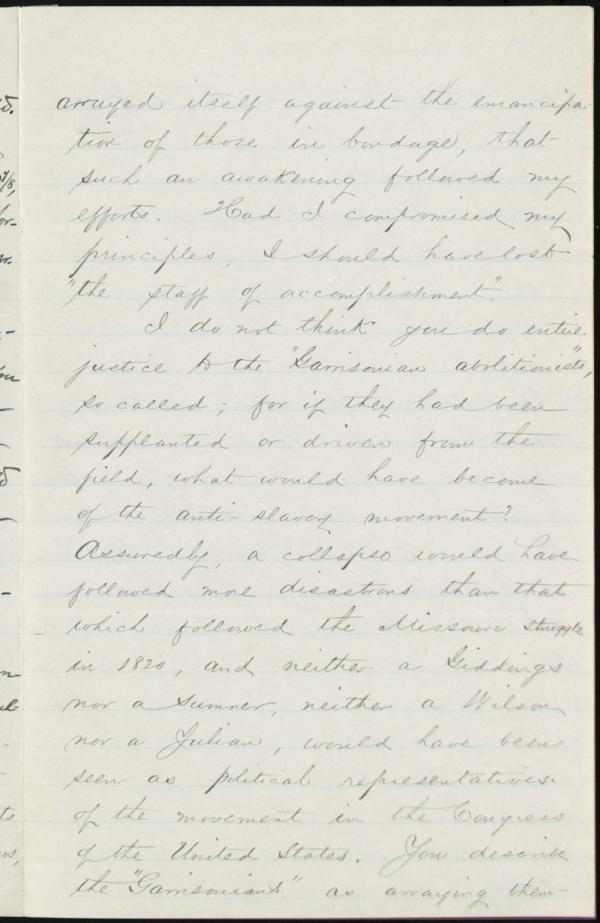 arrayed itself against the emancipa-
tion of those in bondage, that
such an awakening followed my
efforts. Had I compromised my
principles, I should have lost
"the staff of accomplishment".
I do not think you do entire
justice to the "Garrisonian abolitionists",
so called; for if they had been
supplanted or driven from the
field, what would have become
of the anti-slavery movement?
Assuredly, a collapse would have
followed more disastrous than that
which followed the Missouri struggle
in 1820, and neither a Giddings
nor a Sumner, neither a Wilson
nor a Julian, would have been
seen as political representatives
of the movement in the Congress
of the United States. You describe
the "Garrisonians" as arraying them-